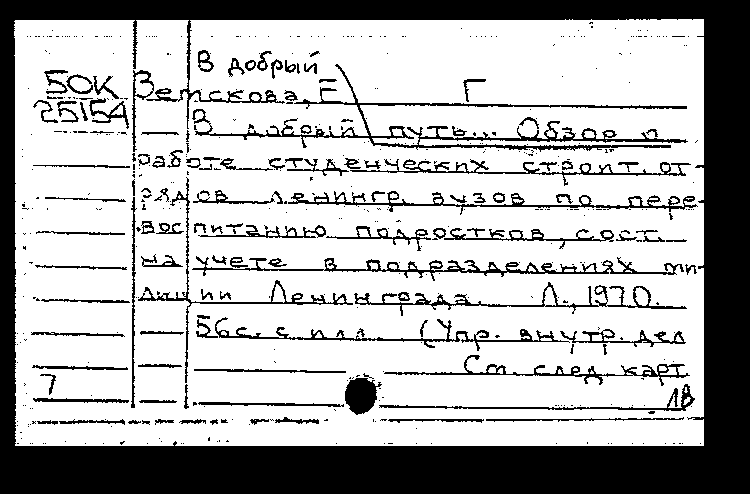 В добрый
БОК Земскова, Е Г
25154 В добрый путь... Обзор п
работе студенческих строит. от-
рядов ленингр. вузов по пере-
воспитанию подростков, сост.
на учете в подразделениях ми-
лиции Ленинграда. Л., 1970.
56с. с илл. (Упр. внутр. дел
См. след. карт
7
1В